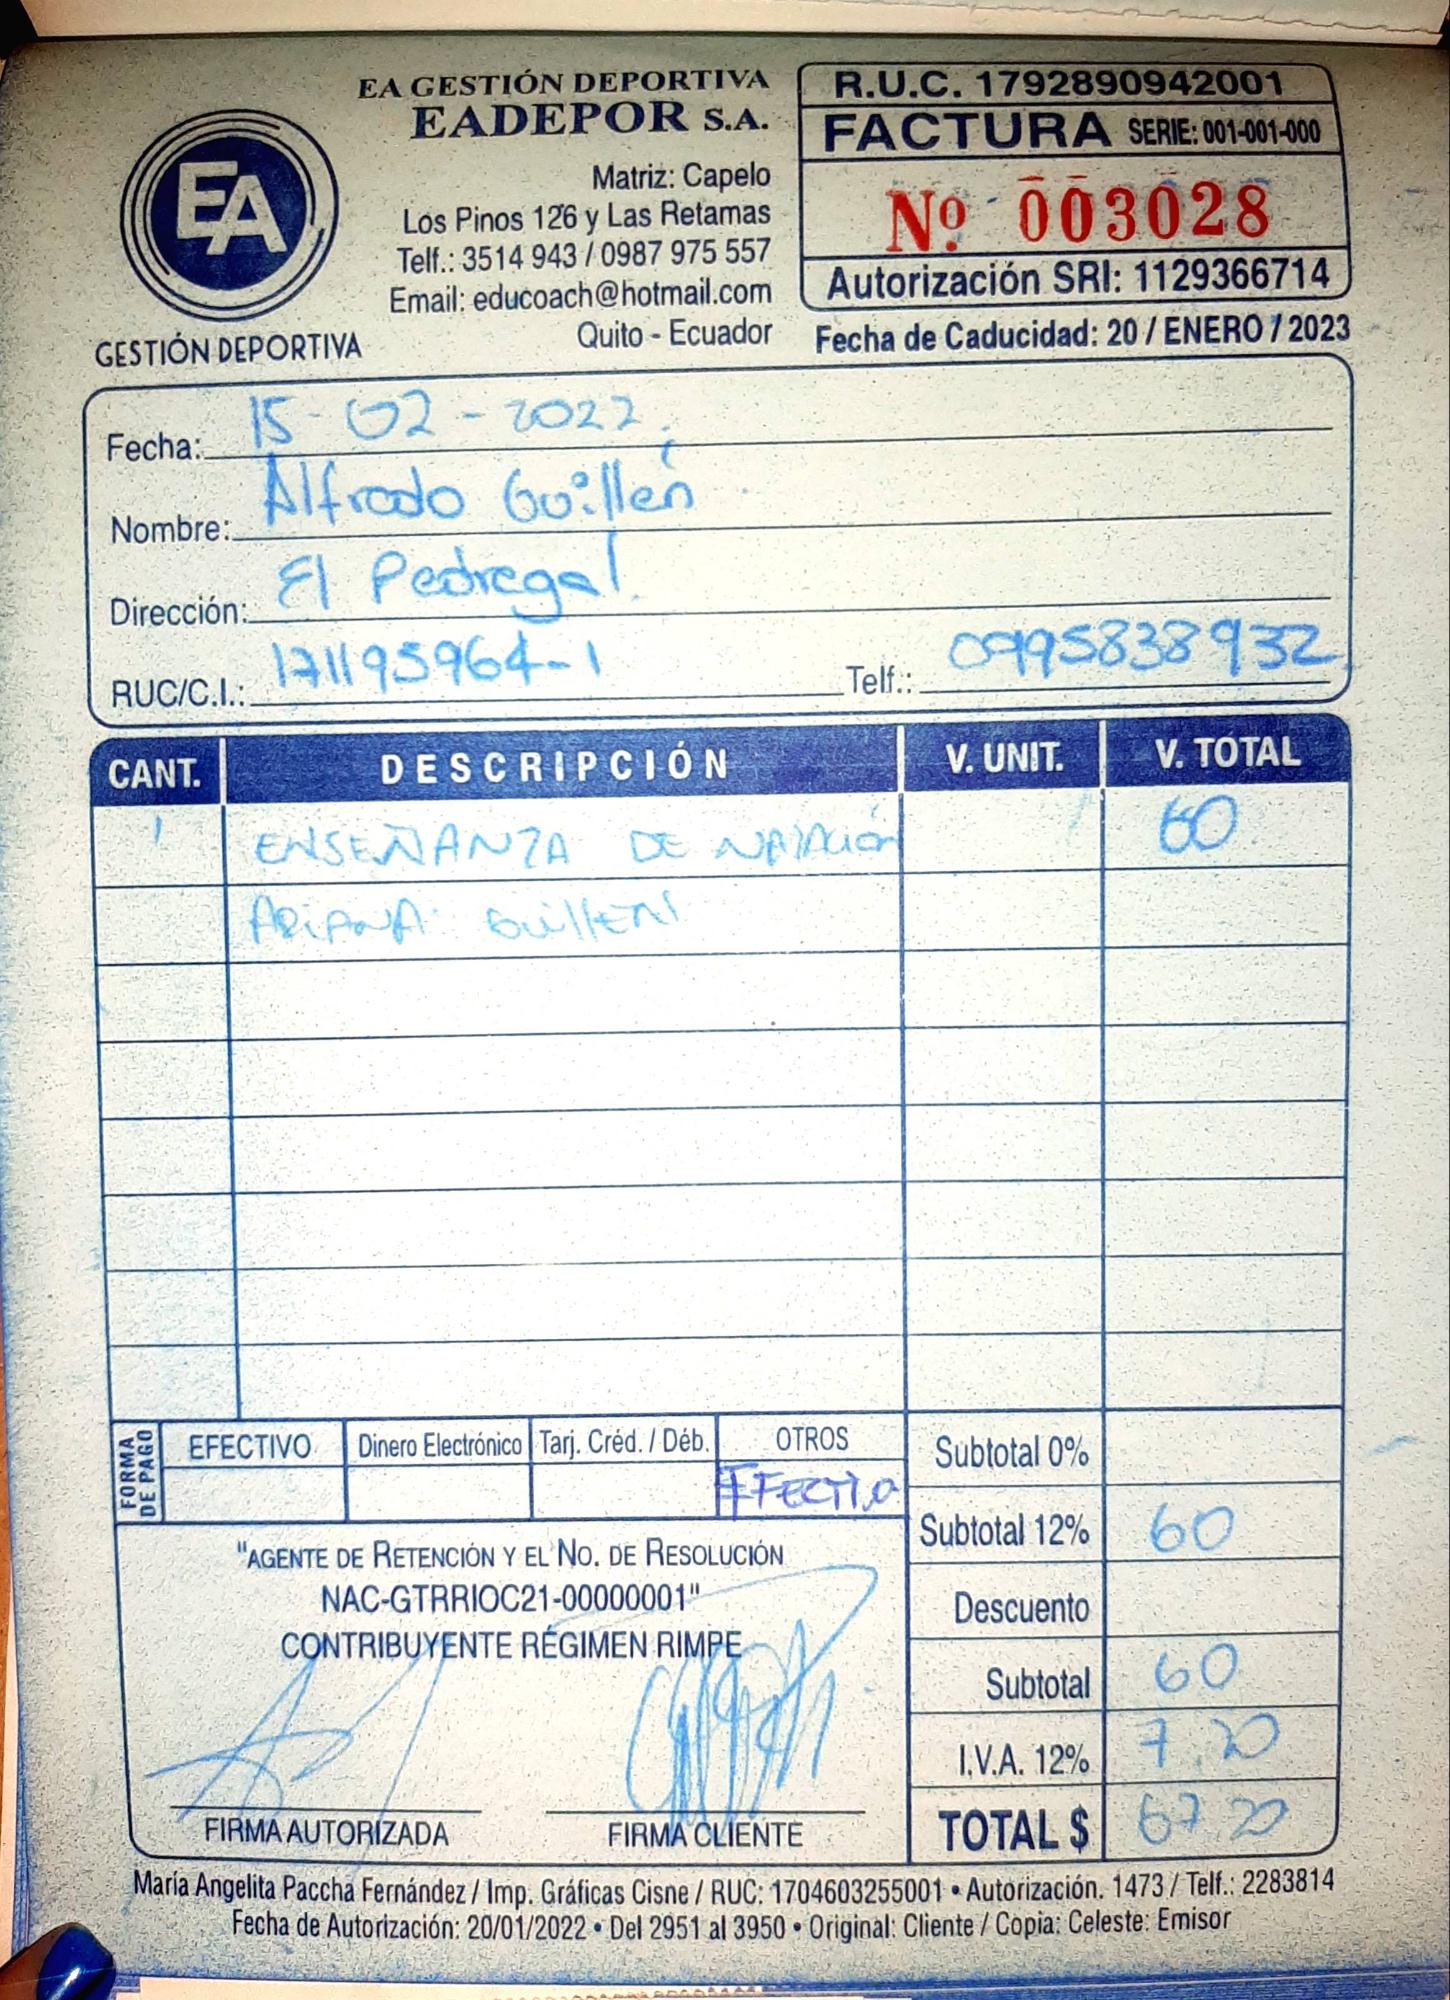 EA GESTIÓN DEPORTIVA
EADEPOR S.A.
Matriz: Capelo
Los Pinos 126 y Las Retamas
Telf.: 3514 943 / 0987 975 557
Email: educoach@hotmail.com
Quito - Ecuador
EA
GESTIÓN DEPORTIVA
R.U.C. 1792890942001
FACTURA SERIE: 001-001-000
Nº 003028
Autorización SRI: 1129366714
Fecha de Caducidad: 20 / ENERO / 2023
Fecha: 15-02-2022
Nombre: Alfredo Guillén
Dirección: El Pedregal
RUC/C.I.: 171195964-1 Telf.: 0995838932
CANT. DESCRIPCIÓN V. UNIT. V. TOTAL
1 ENSEÑANZA DE NATACIÓN 60
ARIANA GUILLEN
FORMA DE PAGO
EFECTIVO Dinero Electrónico Tarj. Créd. / Déb. OTROS
EFECTIVO
Subtotal 0%
Subtotal 12% 60
Descuento
Subtotal 60
I.V.A. 12% 7.20
TOTAL $ 67.20
"AGENTE DE RETENCIÓN Y EL NO. DE RESOLUCIÓN
NAC-GTRRIOC21-00000001"
CONTRIBUYENTE RÉGIMEN RIMPE
FIRMA AUTORIZADA FIRMA CLIENTE
María Angelita Paccha Fernández / Imp. Gráficas Cisne / RUC: 1704603255001 • Autorización. 1473 / Telf.: 2283814
Fecha de Autorización: 20/01/2022 • Del 2951 al 3950 • Original: Cliente / Copia: Celeste: Emisor